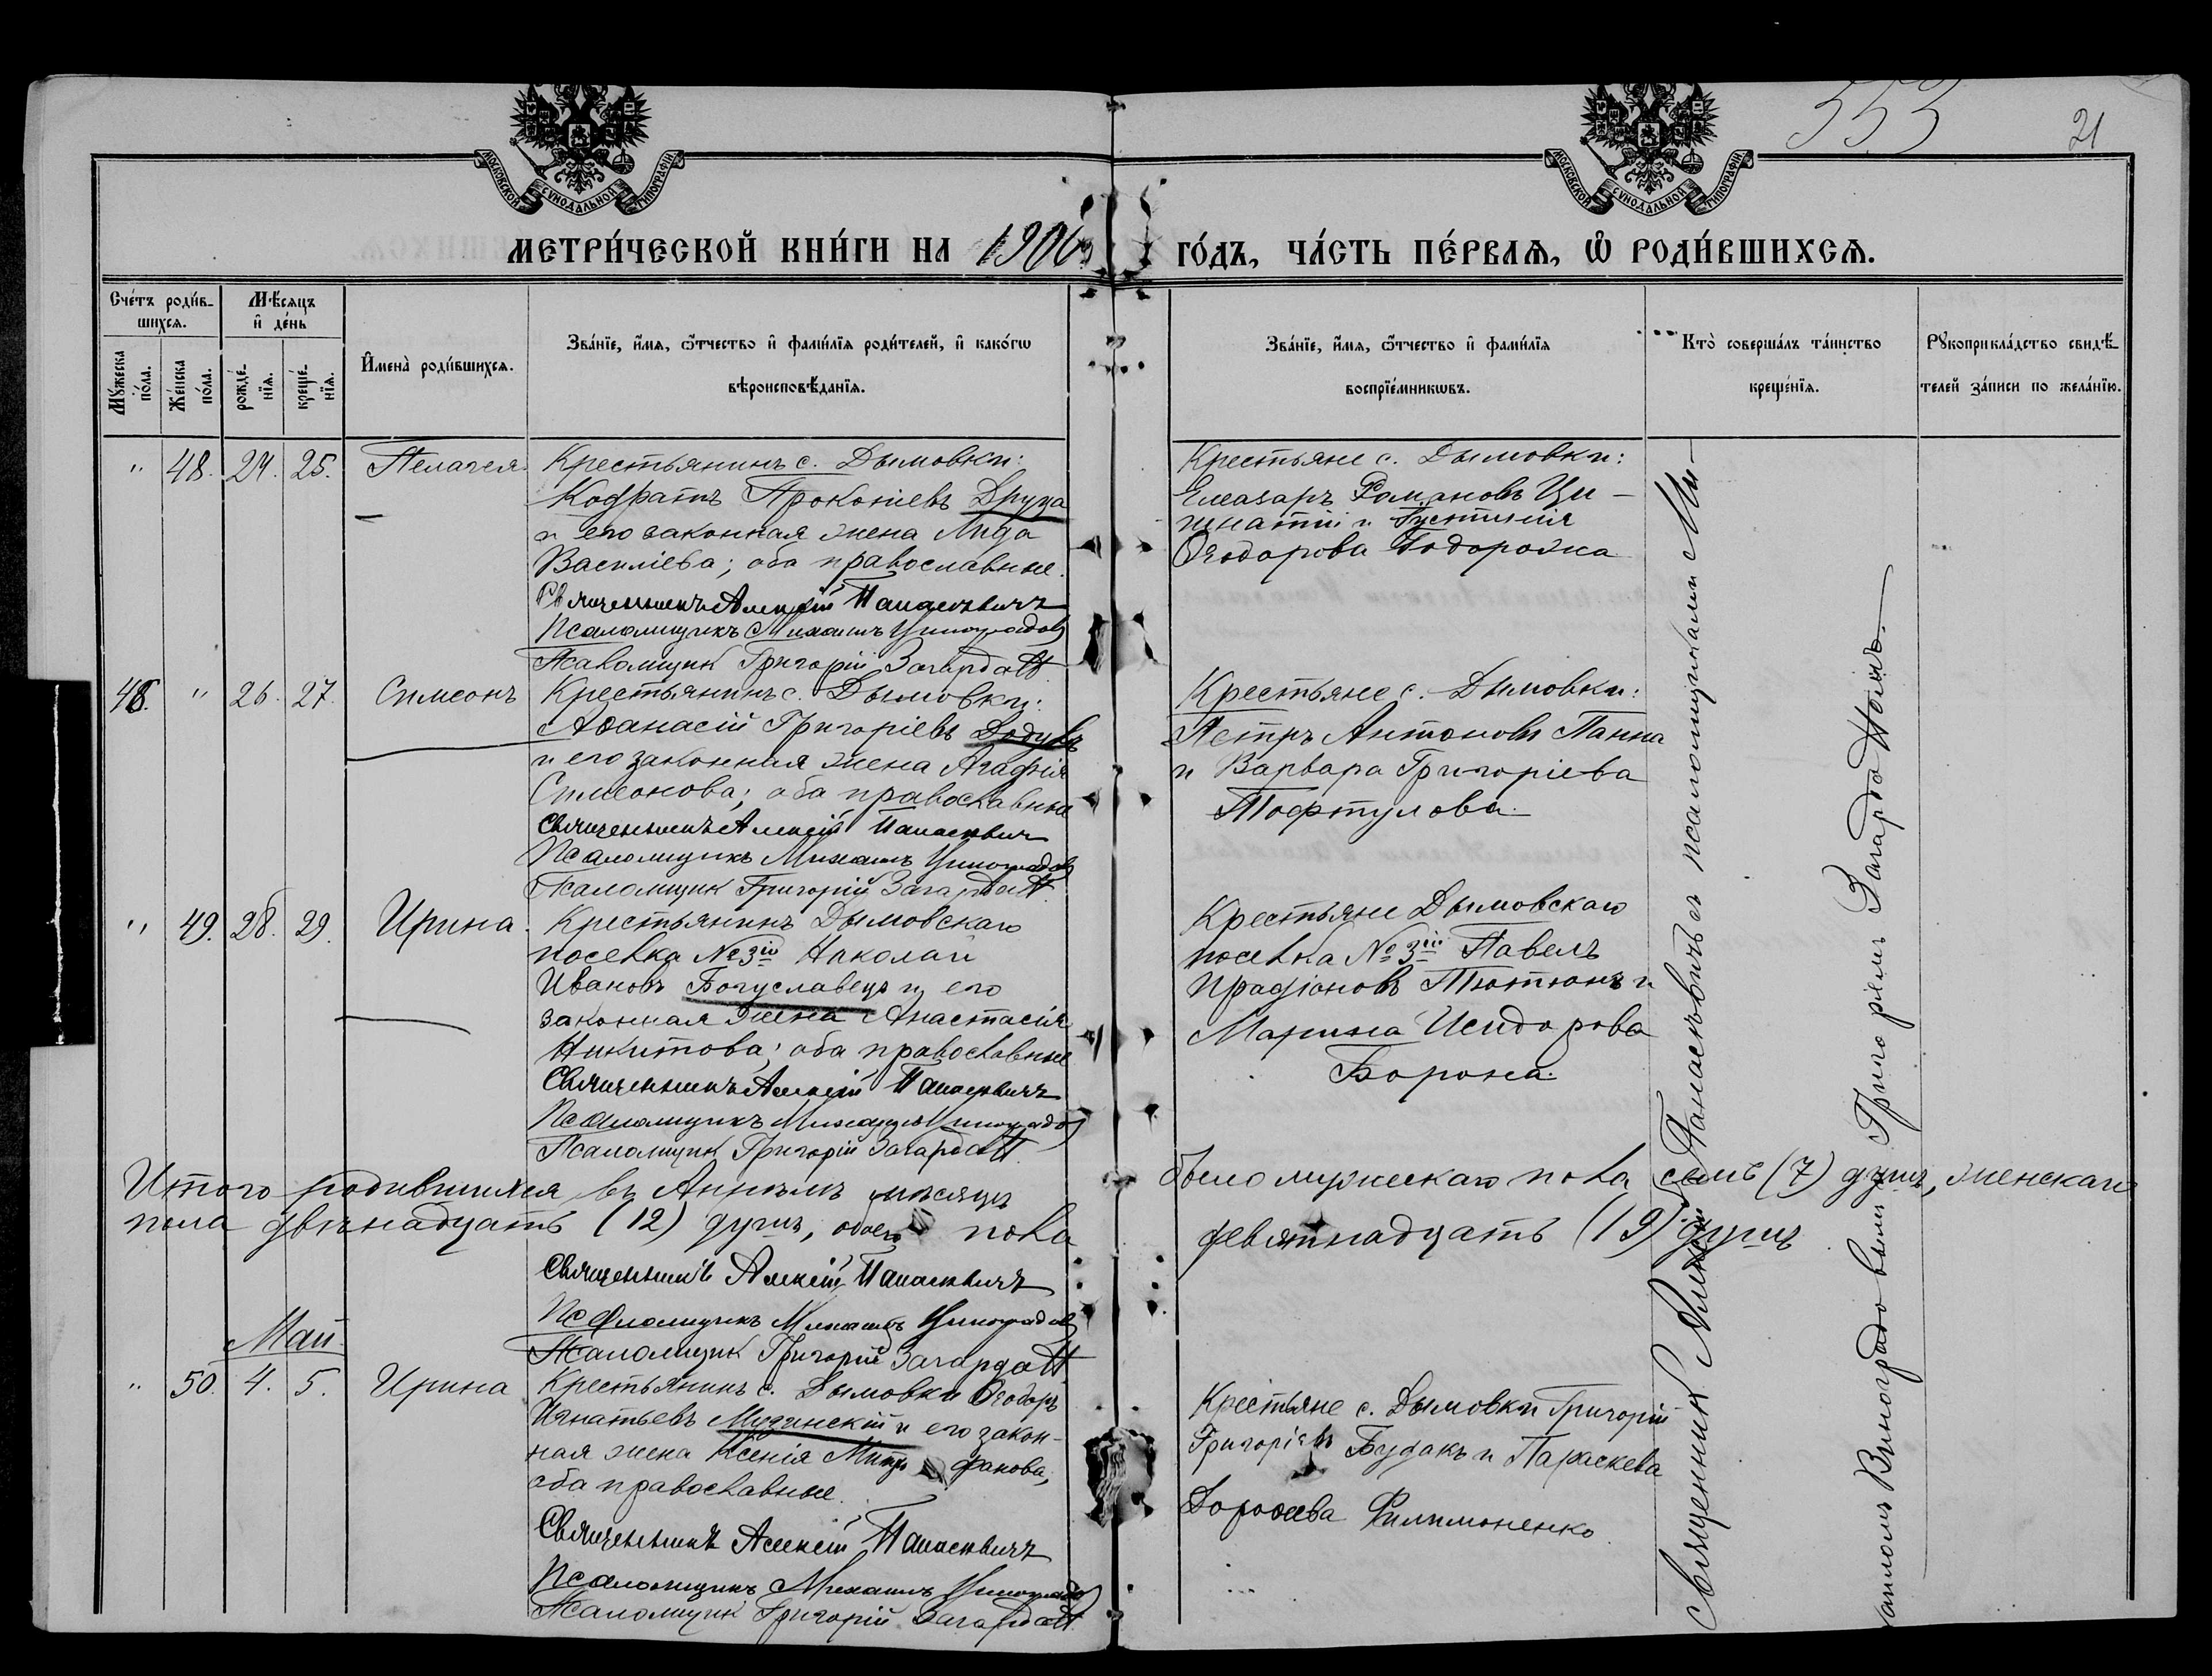 553
21
МОСКОВСКОЙ СѴНОДАЛЬНОЙ ТИПОГРАФІИ
МОСКОВСКОЙ СѴНОДАЛЬНОЙ ТИПОГРАФІИ
МЕТРИ́ЧЕСКОЙ КНИ́ГИ НА 1906 ГО́ДЪ, ЧА́СТЬ ПЕ́РВАѦ, Ѡ҆ РОДИ́ВШИХСѦ.
Сче́тъ роди́в-
шихсѧ.
Мꙋ́жеска по́ла.
Же́нска по́ла.
Мѣ́сѧцъ
и҆ де́нь
рожде́-
нїѧ.
креще́-
нїѧ.
И҆мена̀ роди́вшихсѧ.
Зва́нїе, и҆́мѧ, ѻ҆́тчество и҆ фами́лїѧ роди́телей, и҆ како́гѡ
вѣроисповѣ́данїѧ.
Зва́нїе, и҆́мѧ, ѻ҆́тчество и҆ фами́лїѧ
воспрїе́мникѡвъ.
Кто̀ соверша́лъ та́инство
креще́нїѧ.
Рꙋкоприкла́дство свидѣ́-
телей за́писи по жела́нїю.
" 48. 24. 25. Пелагея
Крестьянинъ с. Дымовки:
Кодратъ Прокопіевъ Друца
и его законная жена Лида
Василіева; оба православные.
Священникъ Алексій Панасевичъ
Псаломщикъ Михаилъ Виноградов
Псаломщик Григорій
Крестьяне с. Дымовки:
Елеазаръ Романовъ Ци-
гнатій и Густинія
Ѳеодорова Тодорожка
48. " 26. 27. Симеонъ
Крестьянинъ с. Дымовки:
Аѳанасій Григоріевъ Додулъ
и его законная жена Агафія
Симеонова; оба православные
Священникъ Алексій Панасевич
Псаломщикъ Михаилъ Виноградов
Псаломщик Григорій
Крестьяне с. Дымовки:
Петръ Антоновъ Панна
и Варвара Григоріева
Тофтулова.
" 49. 28. 29. Ирина.
Крестьянинъ Дымовскаго
поселка №3ій Николай
Ивановъ Богуславецъ и его
законная жена Анастасія
Никитова; оба православные
Священникъ Алексій Панасевичъ
Псаломщикъ Михаилъ Виноградов
Псаломщик Григорій
Крестьяне Дымовскаго
поселка №3ій Павелъ
Иродіоновъ Тютюнъ и
Марина Исидорова
Борона.
Итого родившихся въ Апрѣлѣ мѣсяцѣ было мужескаго пола семь (7) душъ, женскаго
пола двѣнадцать (12) душъ, обоего пола девятнадцать (19) душъ
Священникъ Алексій Панасевичъ
Псаломщикъ Михаилъ Виноградов
Псаломщик Григорій
Май.
" 50. 4. 5. Ирина
Крестьянинъ с. Дымовки Ѳеодоръ
Игнатьевъ Мудинскій и его закон-
ная жена Ксенія Митро фанова;
оба православные.
Священникъ Алексій Панасевичъ
Псаломщикъ Михаилъ Виноградов
Псаломщик Григорій
Крестьяне с. Дымовки Григорій
Григоріевъ Будакъ и Параскева
Дороѳеева Филимоненко
Священникъ Алексій Панасевичъ съ псаломщиками Ми-
хаиломъ Виноградовымъ и Григоріемъ